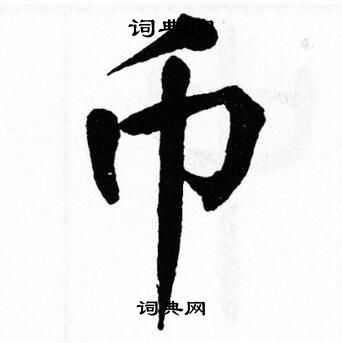 词典网
币
词典网